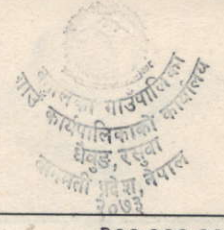 गाउँपालिका
गाउँ कार्यपालिकाको कार्यालय
धैवुङ, रसुवा
बागमती प्रदेश, नेपाल
२०७३